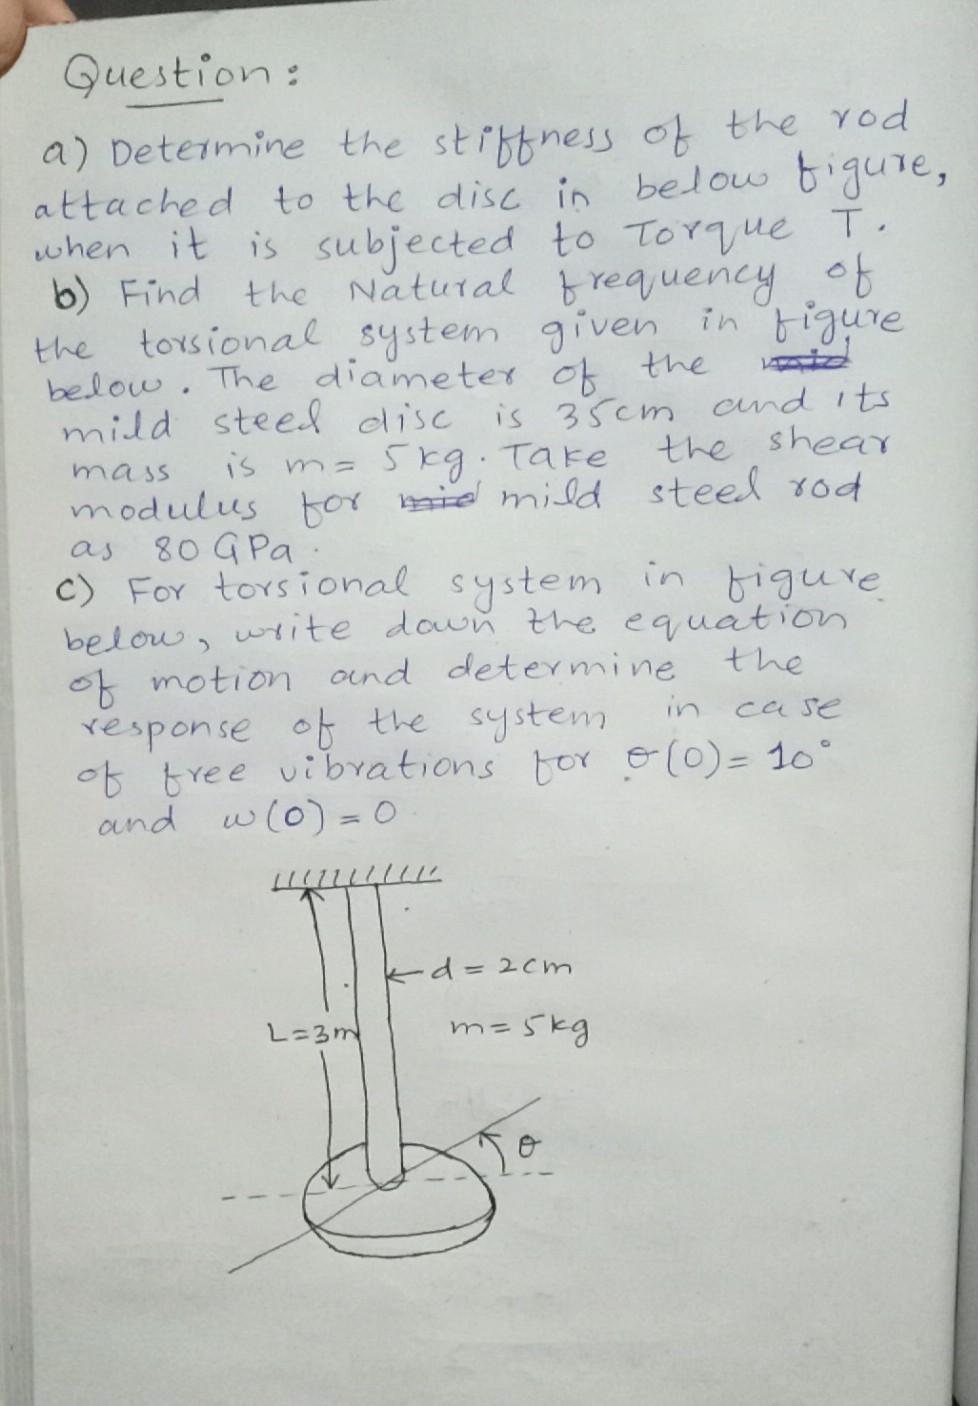 Question:
a) Determine the stiffness of the rod
attached to the disc in below figure,
when it is subjected to Torque T.
b) Find the Natural frequency of
the torsional system given in figure
below. The diameter of the
mild steel disc is 35cm and its
mass is m = 5 kg. Take the shear
modulus for mild steel rod
as 80 GPa.
c) For torsional system in figure
below, write down the equation
of motion and determine the
response of the system in case
of free vibrations for θ(0) = 10°
and w(0) = 0
d = 2cm
L=3m
m = 5kg
θ